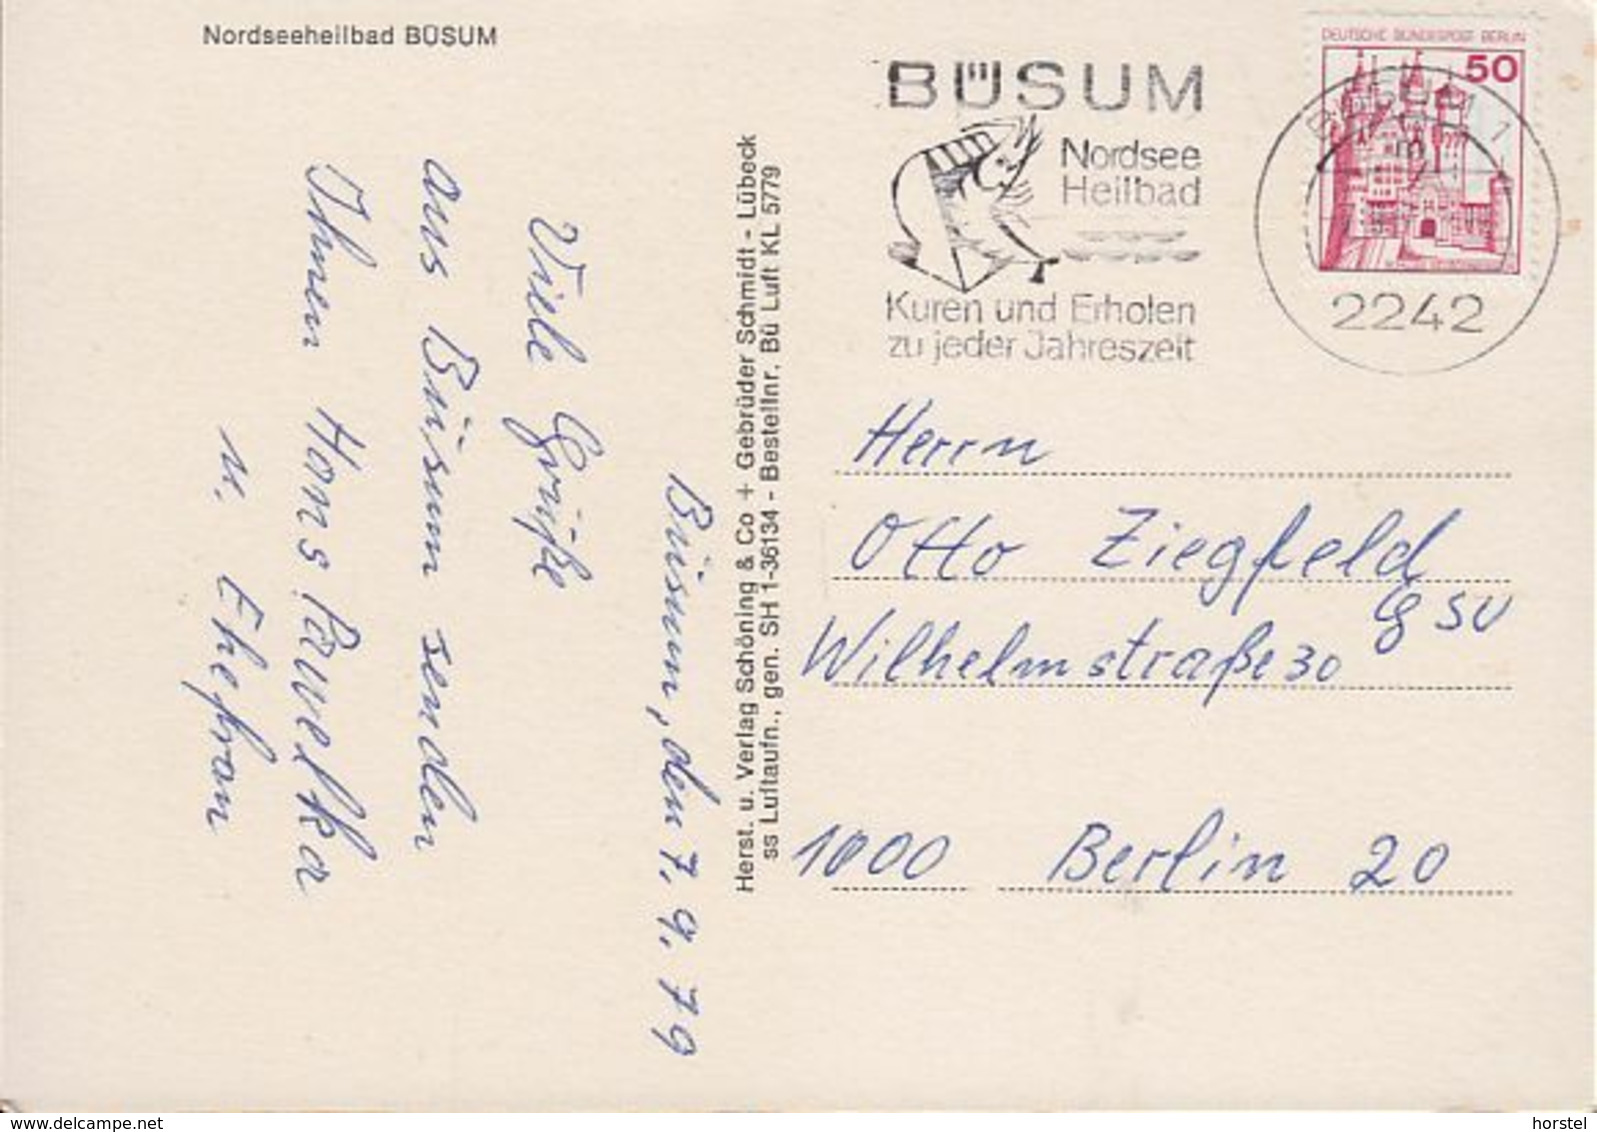 Nordseeheilbad BÜSUM
BÜSUM
Nordsee
Heilbad
Kuren und Erholen
zu jeder Jahreszeit
DEUTSCHE BUNDESPOST BERLIN
50
2242
Büsum, den 7. 9. 79
Viele Grüße
aus Büsum senden
Ihnen Hans Pawelka
u. Ehefrau
Herst. u. Verlag Schöning & Co + Gebrüder Schmidt - Lübeck
ss Luftaufn., gen. SH 1-36134 - Bestellnr. Bü Luft KL 5779
Herrn
Otto Ziegfeld
Wilhelmstraße 30
1000 Berlin 20
www.delcampe.net
horstel